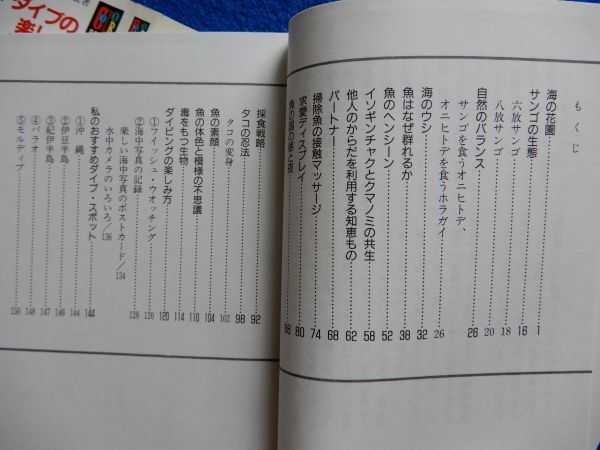 ダイブの
楽し
COLOR
もくじ
海の花園……1
サンゴの生態……16
六放サンゴ……18
八放サンゴ……20
自然のバランス……26
サンゴを食うオニヒトデ、
オニヒトデを食うホラガイ……26
海のウシ……32
魚はなぜ群れるか……38
魚のヘンシーン……52
イソギンチャクとクマノミの共生……58
他人のからだを利用する知恵もの……62
パートナー……68
掃除魚の接触マッサージ……74
求愛ディスプレイ……80
魚の国の昼と夜……88
採食戦略……92
タコの忍法……98
タコの変身……102
魚の素顔……104
魚の体色と模様の不思議……110
毒をもつ生物……114
ダイビングの楽しみ方……120
①フィッシュ・ウオッチング……120
②海中写真の記録……128
楽しい海中写真のポストカード/134
水中カメラのいろいろ/136
私のおすすめダイブ・スポット……144
①沖縄……144
②伊豆半島……146
③紀伊半島……147
④パラオ……148
⑤モルディブ……150